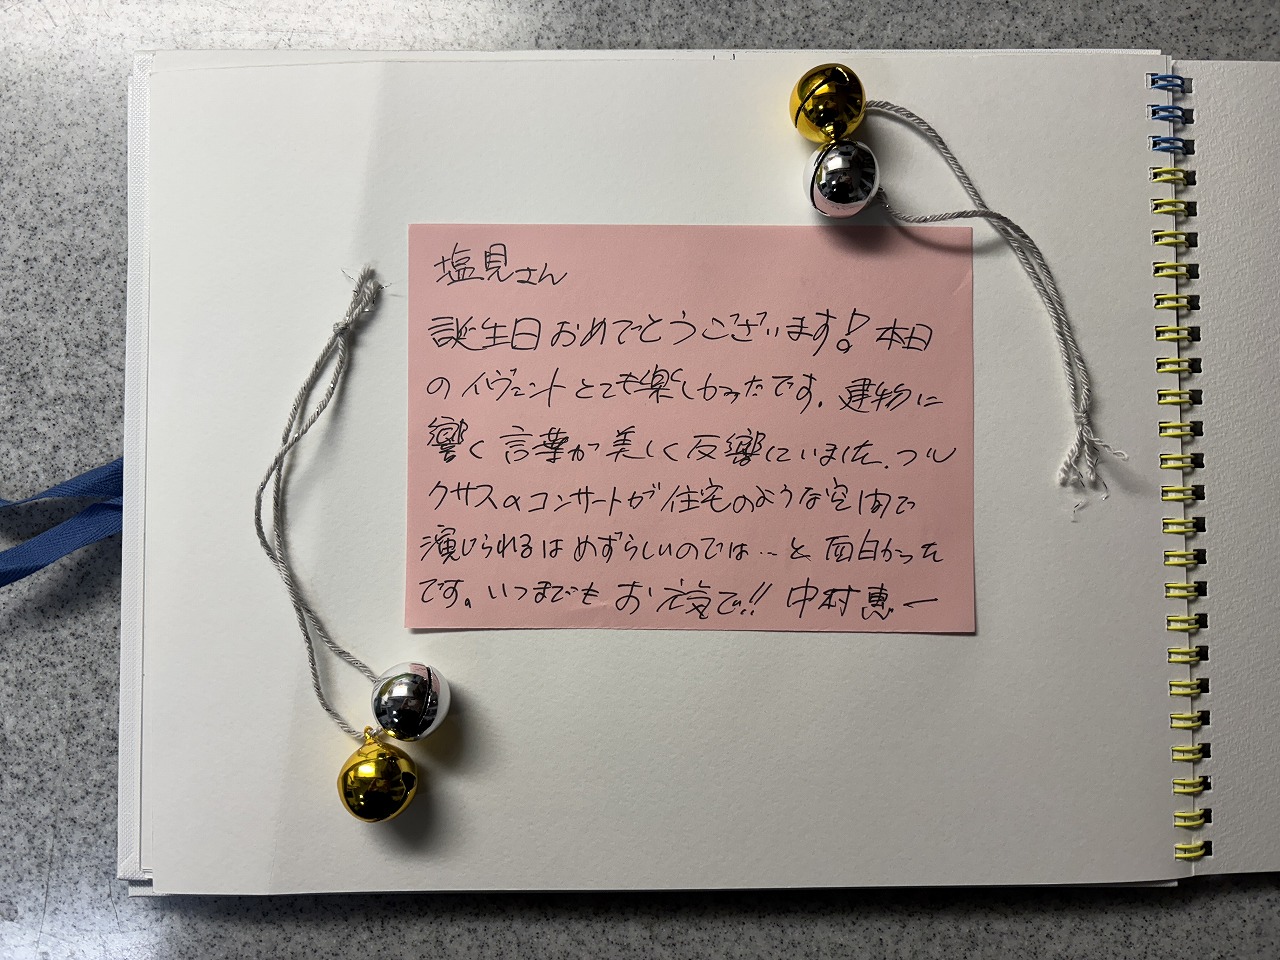 塩見さん
誕生日おめでとうございます！本日
のイヴェントとても楽しかったです。建物に
響く言葉が美しく反響していました。フル
クサスのコンサートが住宅のような空間で
演じられるはめずらしいのでは…と面白かった
です。いつまでもお元気で!! 中村恵一